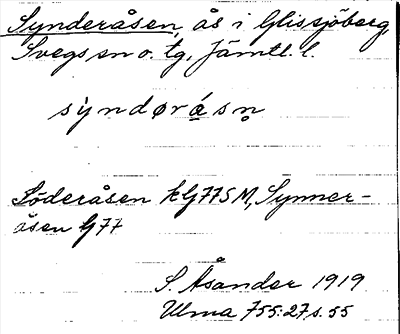 Synderåsen, ås i Glissjöberg,
Svegs sn o. tg, Jämtl. l.
sỳndørásn̥
Söderåsen kG77SM, Synner-
åsen G77
S. Åsander 1919
Ulma 755:27, s. 55